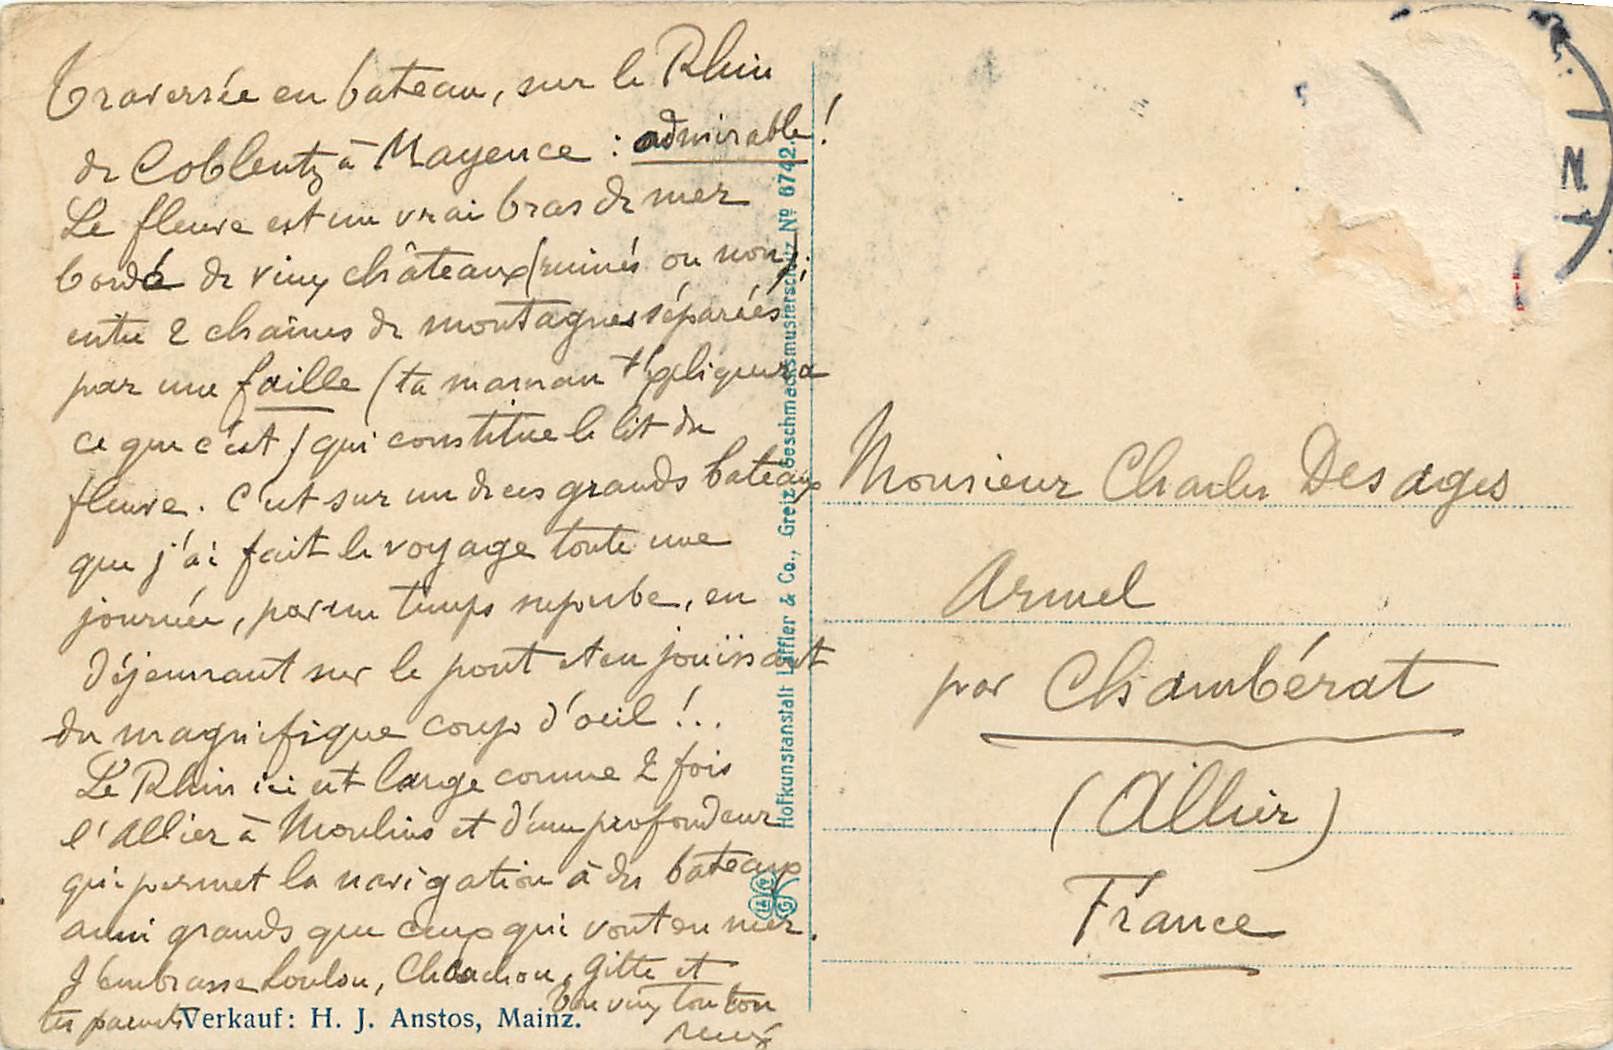 Traversée en bateau, sur le Rhin
de Coblentz à Mayence : admirable !
Le fleuve est un vrai bras de mer
bordé de vieux châteaux (ruinés ou non);
entre 2 chaînes de montagnes séparées
par une faille (ta maman t'expliquera
ce que c'est) qui constitue le lit du
fleuve. C'est sur un de ces grands bateaux
que j'ai fait le voyage toute une
journée, par un temps superbe, en
déjeunant sur le pont et en jouissant
du magnifique coup d'oeil !..
Le Rhin ici est large comme 2 fois
l'Allier à Moulins et d'une profondeur
qui permet la navigation à des bateaux
aussi grands que ceux qui vont en mer.
J'embrasse Loulou, Chouchou, Gitte et
tes parents
Ton vieux tonton
Verkauf: H. J. Anstos, Mainz.
Hofkunstanstalt Löffler & Co., Greiz Geschmacksmusterschutz Nº 6742.
L & C
G
Monsieur Charles Desages
Armel
par Chambérat
(Allier)
France
N